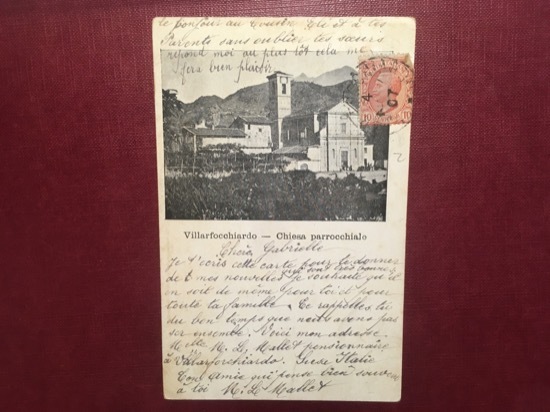 le bonjour au cousin et à tes
Parents sans oublier tes sœurs
répond moi au plus tôt cela me
fera bien plaisir
10 10
07
Villarfocchiardo — Chiesa parrocchiale
Chère Gabrielle
Je t'écris cette carte pour te donner
de mes nouvelles qui sont très bonnes
je souhaite qu'il
en soit de même pour toi et pour
toute ta famille. Te rappelles tu
du bon temps que nous avons pas
ser ensemble. Voici mon adresse
Melle M. L. Mallet pensionnaire
à Villarforchiardo. Suse Italie
Ton amie qui pense bien souv
à toi M. L. Mallet